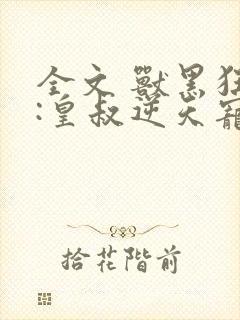 全文 獸黑狂
:皇叔逆天寵
拾花階前